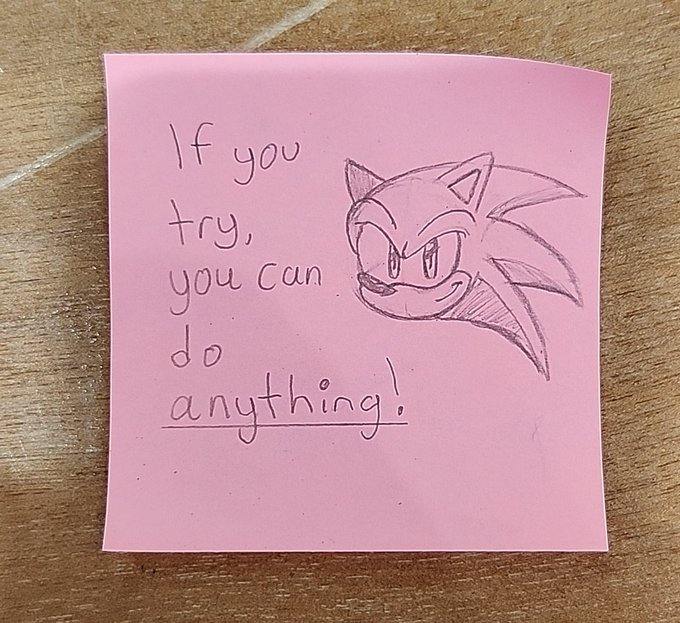 If you
try,
you can
do
anything!